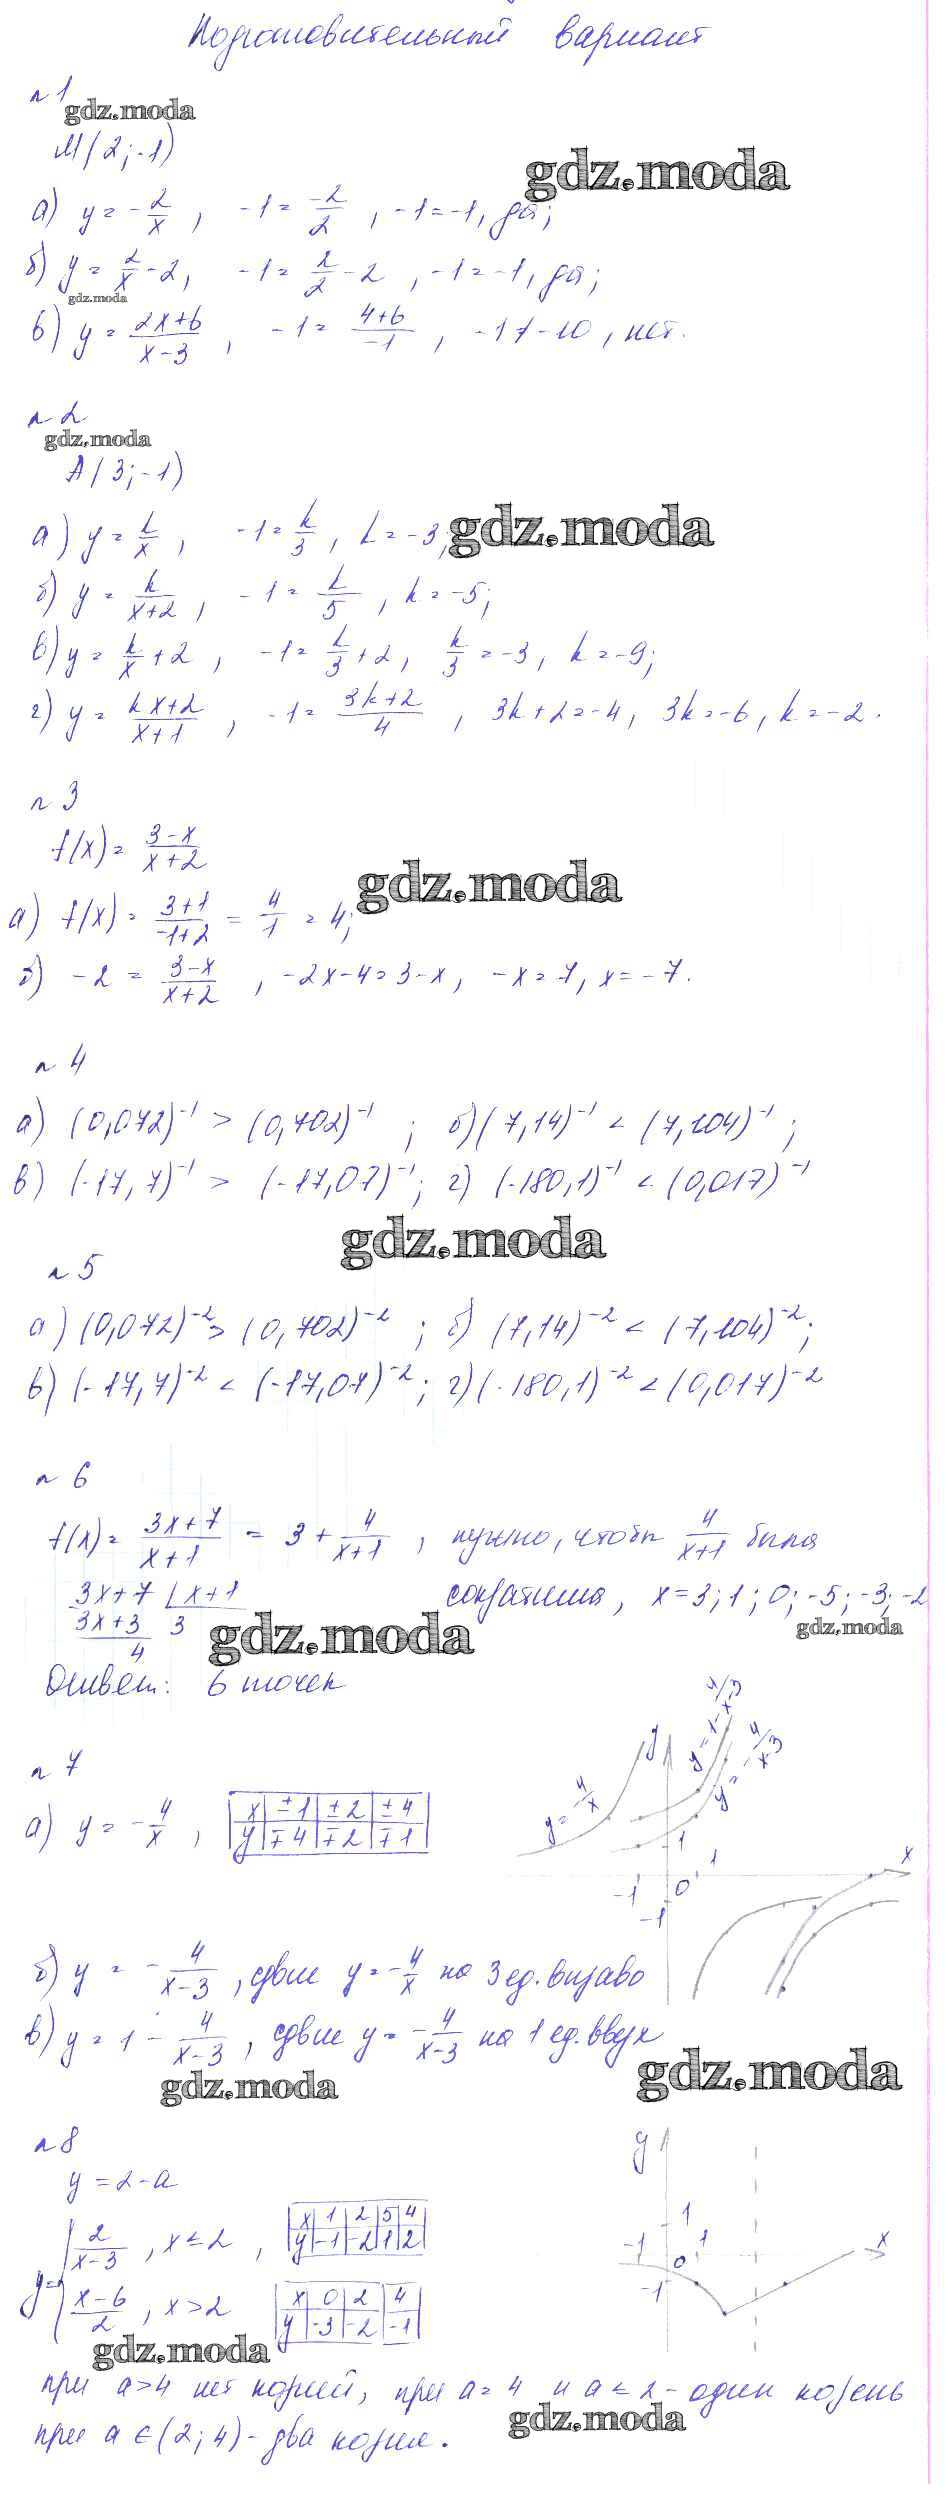 Подготовительный вариант
№ 1
gdz.moda
M(2; -1)
gdz.moda
а) y = -2/x, -1 = -2/2, -1 = -1, да;
б) y = 2/x - 2, -1 = 2/2 - 2, -1 = -1, да;
gdz.moda
в) y = (2x+6)/(x-3), -1 = (4+6)/-1, -1 ≠ -10, нет.
№ 2
gdz.moda
A(3; -1)
а) y = k/x, -1 = k/3, k = -3;
gdz.moda
б) y = k/(x+2), -1 = k/5, k = -5;
в) y = k/x + 2, -1 = k/3 + 2, k/3 = -3, k = -9;
г) y = (kx+2)/(x+1), -1 = (3k+2)/4, 3k+2 = -4, 3k = -6, k = -2.
№ 3
f(x) = (3-x)/(x+2)
gdz.moda
а) f(x) = (3+1)/(-1+2) = 4/1 = 4;
б) -2 = (3-x)/(x+2), -2x-4 = 3-x, -x = 7, x = -7.
№ 4
а) (0,072)⁻¹ > (0,702)⁻¹; б) (7,14)⁻¹ < (7,104)⁻¹;
в) (-17,7)⁻¹ > (-17,07)⁻¹; г) (-180,1)⁻¹ < (0,017)⁻¹
gdz.moda
№ 5
а) (0,072)⁻² > (0,702)⁻²; б) (7,14)⁻² < (7,104)⁻²;
в) (-17,7)⁻² < (-17,07)⁻²; г) (-180,1)⁻² < (0,017)⁻²
№ 6
f(x) = (3x+7)/(x+1) = 3 + 4/(x+1), нужно, чтобы 4/(x+1) была
3x+7 | x+1
сократима, x = 3; 1; 0; -5; -3; -2
3x+3 3
4
gdz.moda
gdz.moda
Ответ: 6 точек
№ 7
а) y = -4/x,
x ±1 ±2 ±4
y ∓4 ∓2 ∓1
y = -4/x
y = 1 - 4/(x-3)
y = -4/(x-3)
y
1
1
x
-1
0
-1
б) y = -4/(x-3), сдвиг y = -4/x на 3 ед. вправо
в) y = 1 - 4/(x-3), сдвиг y = -4/(x-3) на 1 ед. вверх
gdz.moda
gdz.moda
№ 8
y = 2-a
y = { 2/(x-3), x ≤ 2,
x 1 2 5 4
y -1 -2 1 2
(x-6)/2, x > 2
x 0 2 4
y -3 -2 -1
y
1
1
x
-1
0
-1
gdz.moda
при a > 4 нет корней, при a = 4 и a ≤ 2 - один корень
gdz.moda
при a ∈ (2; 4) - два корня.